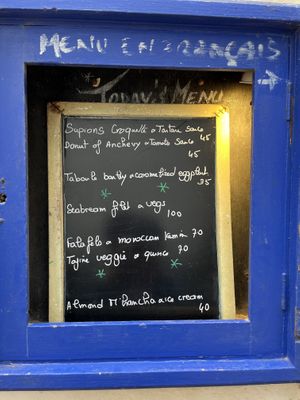 MENU EN FRANÇAIS
TODAY'S MENU
Supions Croquette & Tartar Sauce
45
Donut of Anchovy & Tomato Sauce
45
Taboulé & caramelized eggplant
35
Seabream filet & vegs
100
Falafels & moroccan 70
Tajine veggie & quince 70
Almond M'hancha & ice cream
40